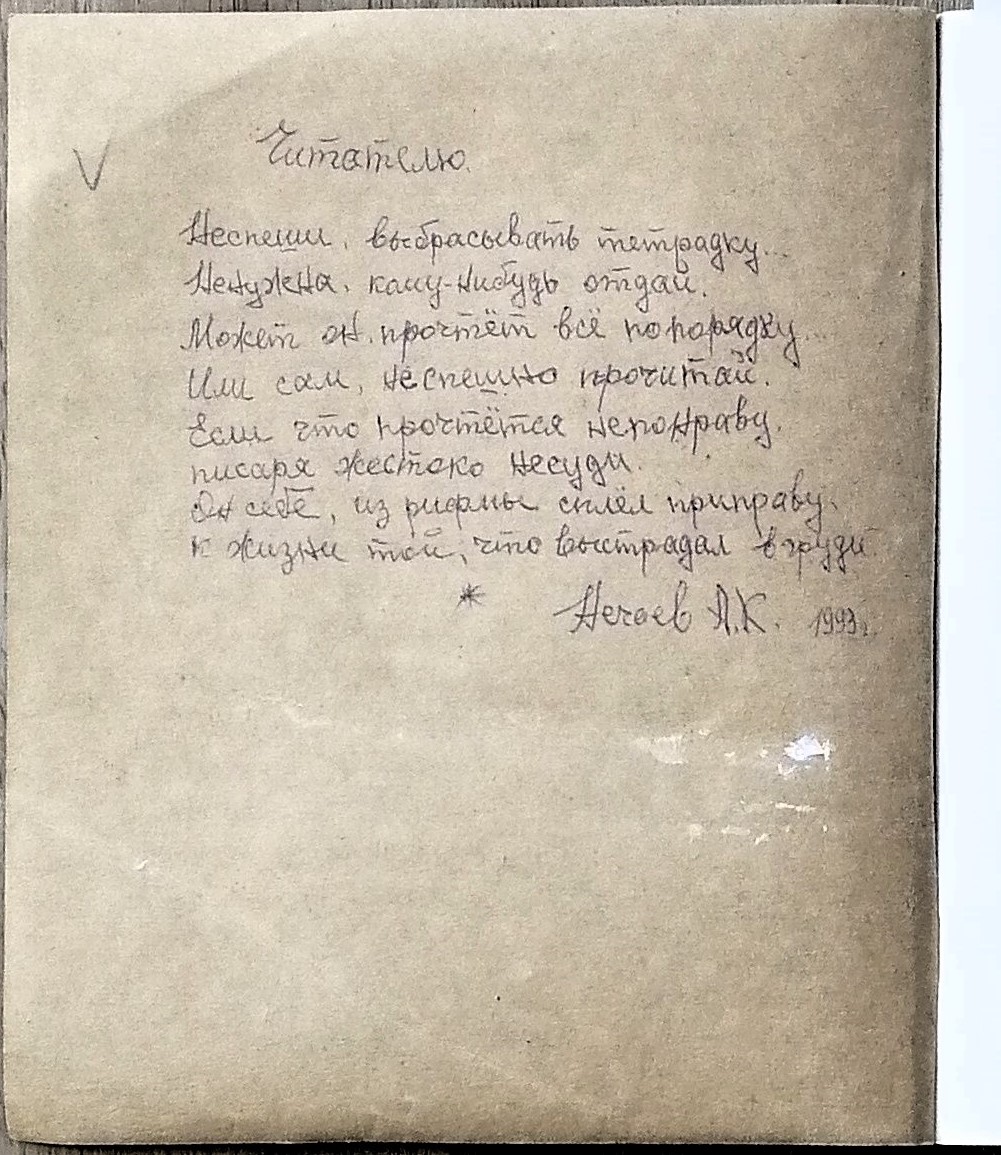 Читателю.
Неспеши, выбрасывать тетрадку...
Ненужна, кому-нибудь отдай.
Может он, прочтёт всё попорядку...
Или сам, неспешно прочитай.
Если что прочтётся непонраву,
писаря жестоко несуди.
Он себе, из рифмы сплёл приправу,
к жизни той, что выстрадал в груди.
*
Нечаев А.К. 1993г.